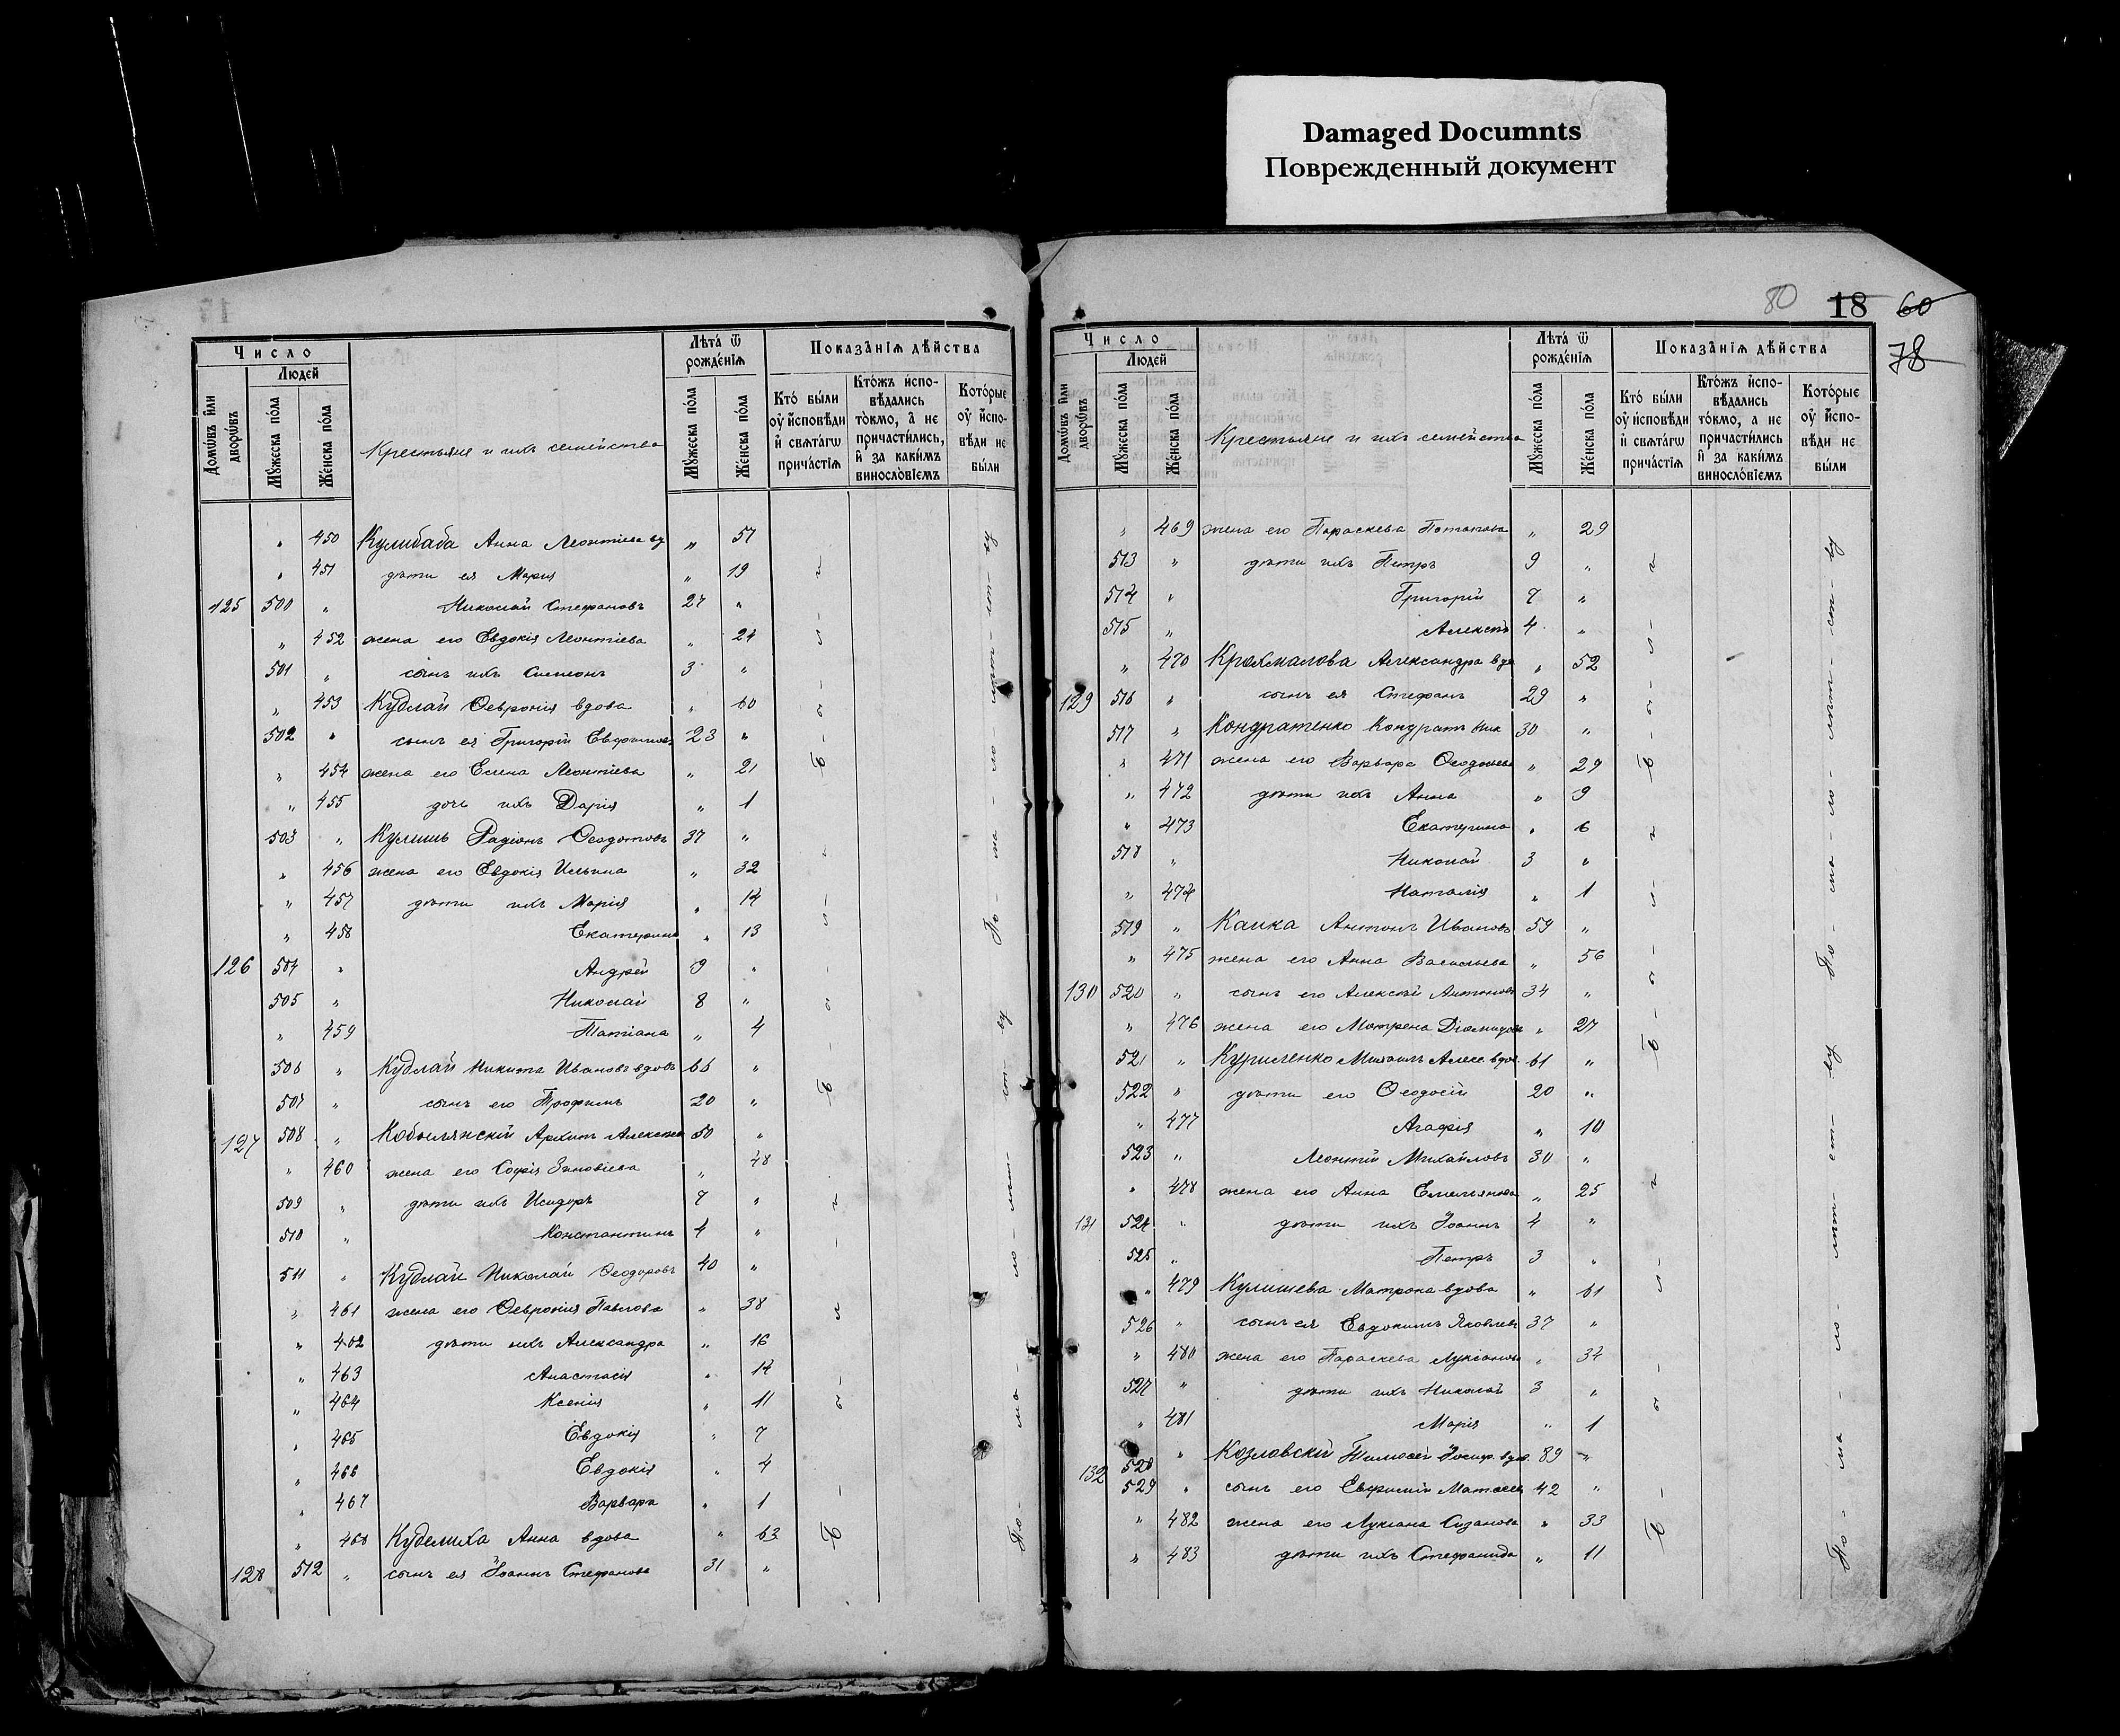 Damaged Documnts
Поврежденный документ
80 18 60
78
Число
Людей
Домѡвъ или дворѡвъ
Мꙋжеска пола
Женска пола
Крестьяне и ихъ семейства
Лѣта ѿ рожденїѧ
Мꙋжеска пола
Женска пола
Показанїѧ дѣйства
Кто были оу исповѣди и свѧтагѡ причастїѧ
Ктожъ исповѣдались токмо, а не причастились, и за какимъ винословїемъ
Которые оу исповѣди не были
„ 450 Кулибаба Анна Леонтіева вд „ 57
„ 451 дѣти ея Марія „ 19
125 500 „ Николай Стефановъ 27 „
„ 452 жена его Евдокія Леонтіева „ 24
501 „ сынъ ихъ Симеонъ 3 „
„ 453 Кудлай Ѳевронія вдова „ 60
502 „ сынъ ея Григорій 23 „
„ 454 жена его Елена Леонтіева „ 21
„ 455 дочь ихъ Дарія „ 1
503 „ Кулишъ Радіонъ Ѳеодотовъ 37 „
„ 456 жена его Евдокія Ильина „ 32
„ 457 дѣти ихъ Марія „ 14
„ 458 Екатерина „ 13
126 504 „ Андрей 9 „
505 „ Николай 8 „
„ 459 Татіана „ 4
506 „ Кудлай Никита Ивановъ вдовъ 66 „
507 „ сынъ его Трофимъ 20 „
127 508 „ Кобылянскій Архипъ 50 „
„ 460 жена его Софія Зиновіева „ 48
509 „ дѣти ихъ Исидоръ 7 „
510 „ Константинъ 4 „
511 „ Кудлай Николай Ѳеодоровъ 40 „
„ 461 жена его Ѳевронія Павлова „ 38
„ 462 дѣти ихъ Александра „ 16
„ 463 Анастасія „ 14
„ 464 Ксенія „ 11
„ 465 Евдокія „ 7
„ 466 Евдокія „ 4
„ 467 Варвара „ 1
„ 468 Куделиха Анна вдова „ 63
128 512 „ сынъ ея Іоаннъ Стефановъ 31 „
Число
Людей
Домѡвъ или дворѡвъ
Мꙋжеска пола
Женска пола
Крестьяне и ихъ семейства
Лѣта ѿ рожденїѧ
Мꙋжеска пола
Женска пола
Показанїѧ дѣйства
Кто были оу исповѣди и свѧтагѡ причастїѧ
Ктожъ исповѣдались токмо, а не причастились и за какимъ винословїемъ
Которые оу исповѣди не были
„ 469 жена его Параскева Потапова „ 29
513 „ дѣти ихъ Петръ 9 „
514 „ Григорій 7 „
515 „ Алексѣй 4 „
„ 470 Крахмалова Александра вдо „ 52
129 516 „ сынъ ея Стефанъ 29 „
517 „ Кондратенко Кондратъ Ник 30 „
„ 471 жена его Варвара Ѳеодосіева „ 29
„ 472 дѣти ихъ Анна „ 9
„ 473 Екатерина „ 6
518 „ Николай 3 „
„ 474 Наталія „ 1
519 „ Капка Антонъ Ивановъ 59 „
„ 475 жена его Анна Васильева „ 56
130 520 „ сынъ его Алексѣй Антоновъ 34 „
„ 476 жена его Матрена Діомидова „ 27
521 „ Куриленко Михаилъ Алекс вдов. 61 „
522 „ дѣти его Ѳеодосій 20 „
„ 477 Агафія „ 10
523 „ Леонтій Михайловъ 30 „
„ 478 жена его Анна Емельянова „ 25
131 524 „ дѣти ихъ Іоаннъ 4 „
525 „ Петръ 3 „
„ 479 Кулишева Матрона вдова „ 61
526 „ сынъ ея Евдокимъ Яковлевъ 37 „
„ 480 жена его Параскева „ 34
527 „ дѣти ихъ Николай 3 „
„ 481 Марія „ 1
132 528 „ Козловскій вдов. 89 „
529 „ сынъ его Евфимій 42 „
„ 482 жена его Лукіана „ 33
„ 483 дѣти ихъ Стефанида „ 11